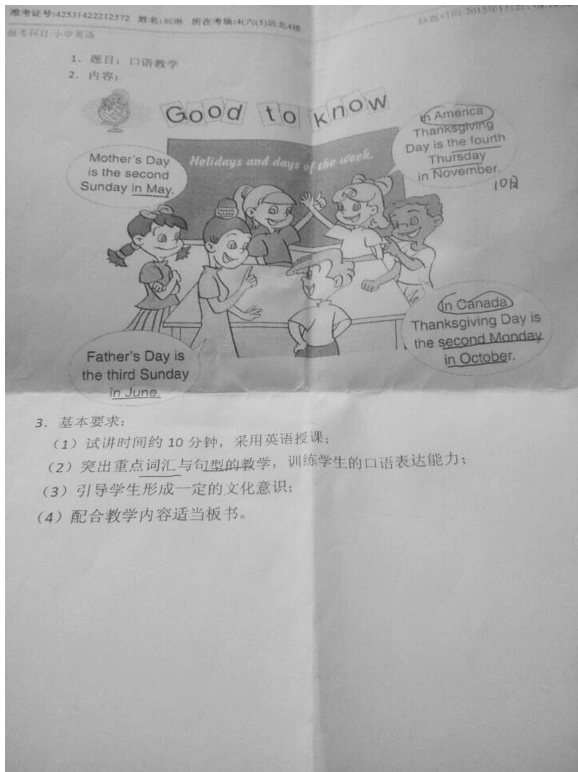 准考证号:42531422212572 姓名:刘琳 所在考场:4(六(3)班北4楼
报考科目:小学英语
1. 题目: 口语教学
2. 内容:
Good to know
Holidays and days of the week.
Mother's Day
is the second
Sunday in May.
In America
Thanksgiving
Day is the fourth
Thursday
in November.
10月
In Canada
Thanksgiving Day is
the second Monday
in October.
Father's Day is
the third Sunday
in June.
3. 基本要求:
(1) 试讲时间约 10 分钟, 采用英语授课;
(2) 突出重点词汇与句型的教学, 训练学生的口语表达能力;
(3) 引导学生形成一定的文化意识;
(4) 配合教学内容适当板书。